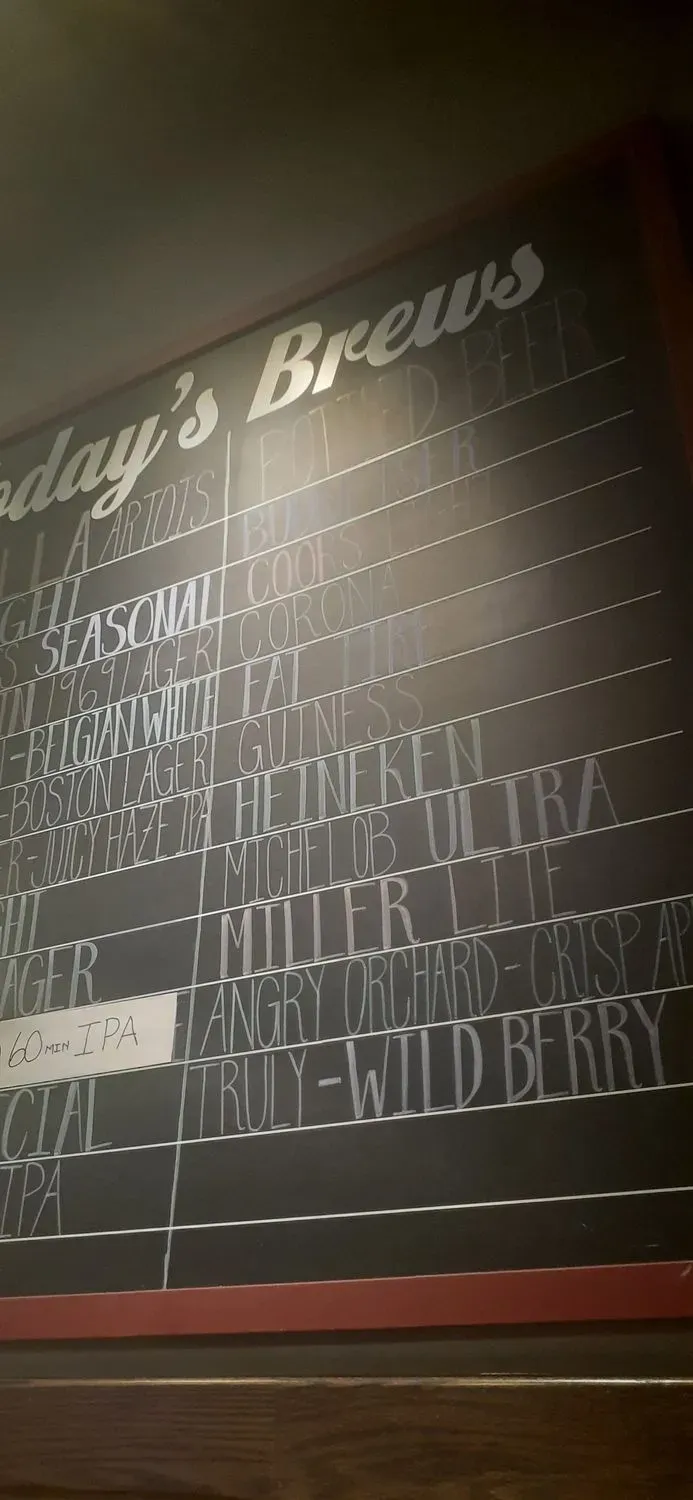 oday's Brews
LLA ARTOIS
GHT
S SEASONAL
IN 1969 LAGER
-BELGIAN WHITE
-BOSTON LAGER
R-JUICY HAZE IPA
GHT
AGER
60 MIN IPA
CIAL
IPA
BOTTLED BEER
BUDWEISER
COORS LIGHT
CORONA
FAT TIRE
GUINESS
HEINEKEN
MICHELOB ULTRA
MILLER LITE
ANGRY ORCHARD-CRISP AP
TRULY-WILD BERRY